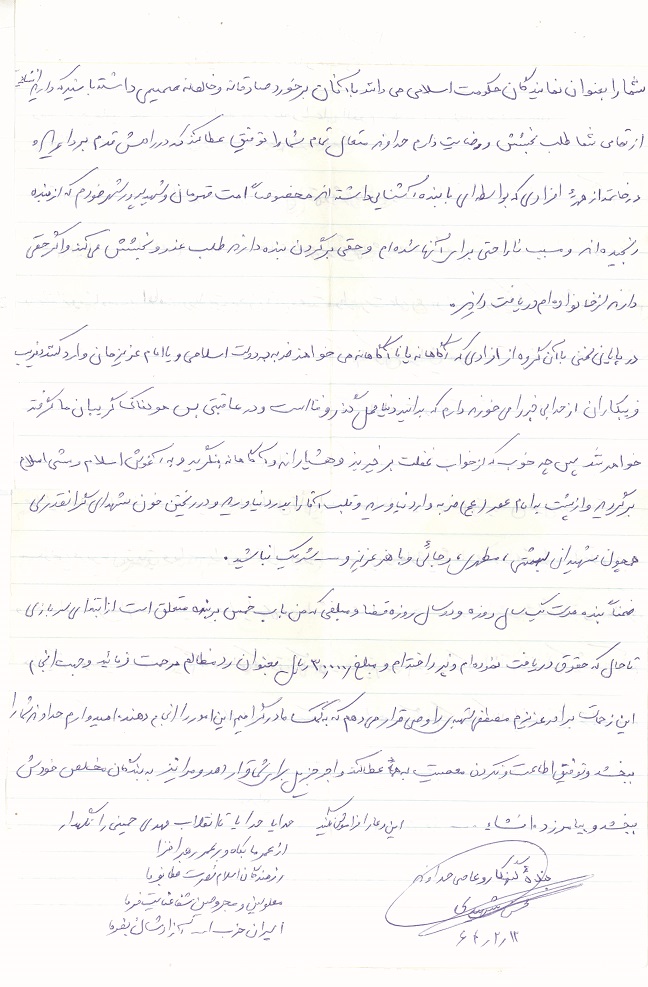 شما را بعنوان نمایندگان حکومت اسلامی می دانند با آنان برخورد صادقانه و خالصانه صمیمی داشته باشید که دارید انشاءا...
از تمامی شما طلب بخشش و رضایت دارم خداوند متعال تمام شما را توفیق عطا کند که در راهش قدم بردارید
در خاتمه از همه افرادی که بواسطه ای با بنده آشنایی داشته اند مخصوصاً امت قهرمان و شهیدپرور شهر خودم که از بنده
رنجیده اند و سبب ناراحتی برای آنها شده ام و حقی برگردن بنده دارند طلب عذر و بخشش می کنم و اگر حقی
دارند از خانواده ام دریافت دارند.
در پایان سخنی با آن گروه از افرادی که آگاهانه یا ناآگاهانه می خواهند ضربه به دولت اسلامی و یا امام عزیزمان وارد کنند و فریب
فریبکاران از خدا بی خبر را می خورند دارم که بدانید دنیا محل گذر و فنا است و در عاقبتی بس هولناک گریبان ما گرفته
خواهد شد پس چه خوب که از خواب غفلت برخیزید و هشیارانه و آگاهانه بنگرید و به آغوش اسلام
برگردید و از پشت به امام عصر (عج) ضربه وارد نیاورید و قلب آنها را بدرد نیاورید و در ریختن خون شهدای گرانقدری
همچون شهیدان بهشتی، مطهری، رجائی و باهنر عزیز و ... شریک نباشید.
ضمناً بنده مدت یک سال روزه و دو سال روزه قضا و مبلغی که من باب خمس بر بنده متعلق است از ابتدای سربازی
تا حال که حقوق دریافت نموده ام و نپرداخته ام و مبلغ ۳۰٬۰۰۰ ریال بعنوان رد مظالم مرحمت فرمائید و جهت انجام
این زحمات برادر عزیزم مصطفی را وصی قرار می دهم که به کمک مادر گرامیم این امور را انجام دهند. امیدوارم خداوند شما را
ببخشد و توفیق اطاعت و نکردن معصیت به همه عطا کند و اجر جزیل برای شما قرار دهد و مرا نیز به بندگان مخلص خودش
ببخشد و بیامرزد. انشاءا... این دعا را فراموش نکنید
خدایا خدایا تا انقلاب مهدی خمینی را نگهدار
از عمر ما بکاه و بر عمر رهبر افزا
رزمندگان اسلام نصرت عطا بفرما
معلولین و مجروحین شفا عنایت فرما
اسیران حزب ا... آزادشان بفرما
بنده گنهکار و عاصی خداوند
۶۲/۲/۱۲